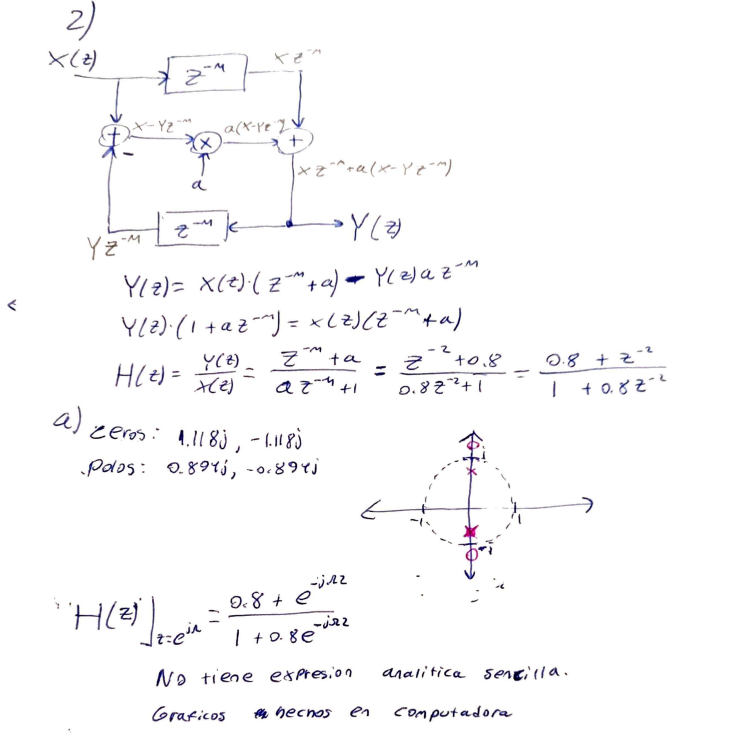 2)
X(z)
z^-M
X z^-M
+
X-Yz^-M
x
a(X-Yz^-M)
+
-
a
Xz^-M+a(X-Yz^-M)
Yz^-M
z^-M
Y(z)
Y(z)= X(z)·(z^-M+a) - Y(z)a z^-M
Y(z)·(1+az^-M)= X(z)(z^-M+a)
H(z) = Y(z)/X(z) = (z^-M+a)/(a z^-M+1) = (z^-2+0.8)/(0.8z^-2+1) = (0.8 + z^-2)/(1 + 0.8z^-2)
a) zeros: 1.118j, -1.118j
Polos: 0.894j, -0.894j
j
-1
1
-j
H(z)]z=e^jΩ = (0.8 + e^-jΩ2)/(1 + 0.8e^-jΩ2)
No tiene expresion analitica sencilla.
Graficos hechos en computadora